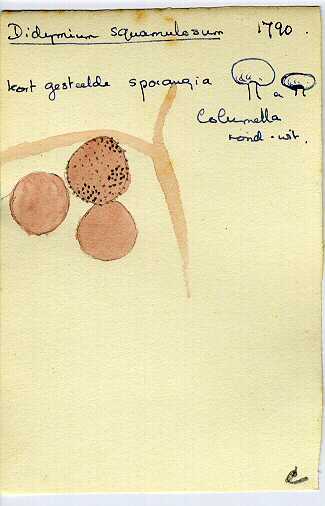 Didymium squamulosum 1790.
kort gesteelde sporangia
a
Columella
rond-wit.